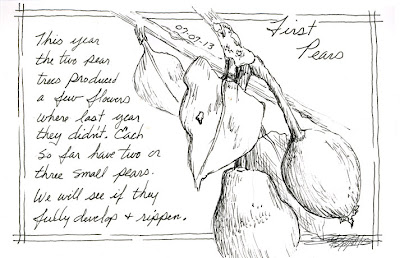 First
Pears
07-07-13
This year
the two pear
trees produced
a few flowers
where last year
they didn't. Each
so far have two or
three small pears.
We will see if they
fully develop + rippen.